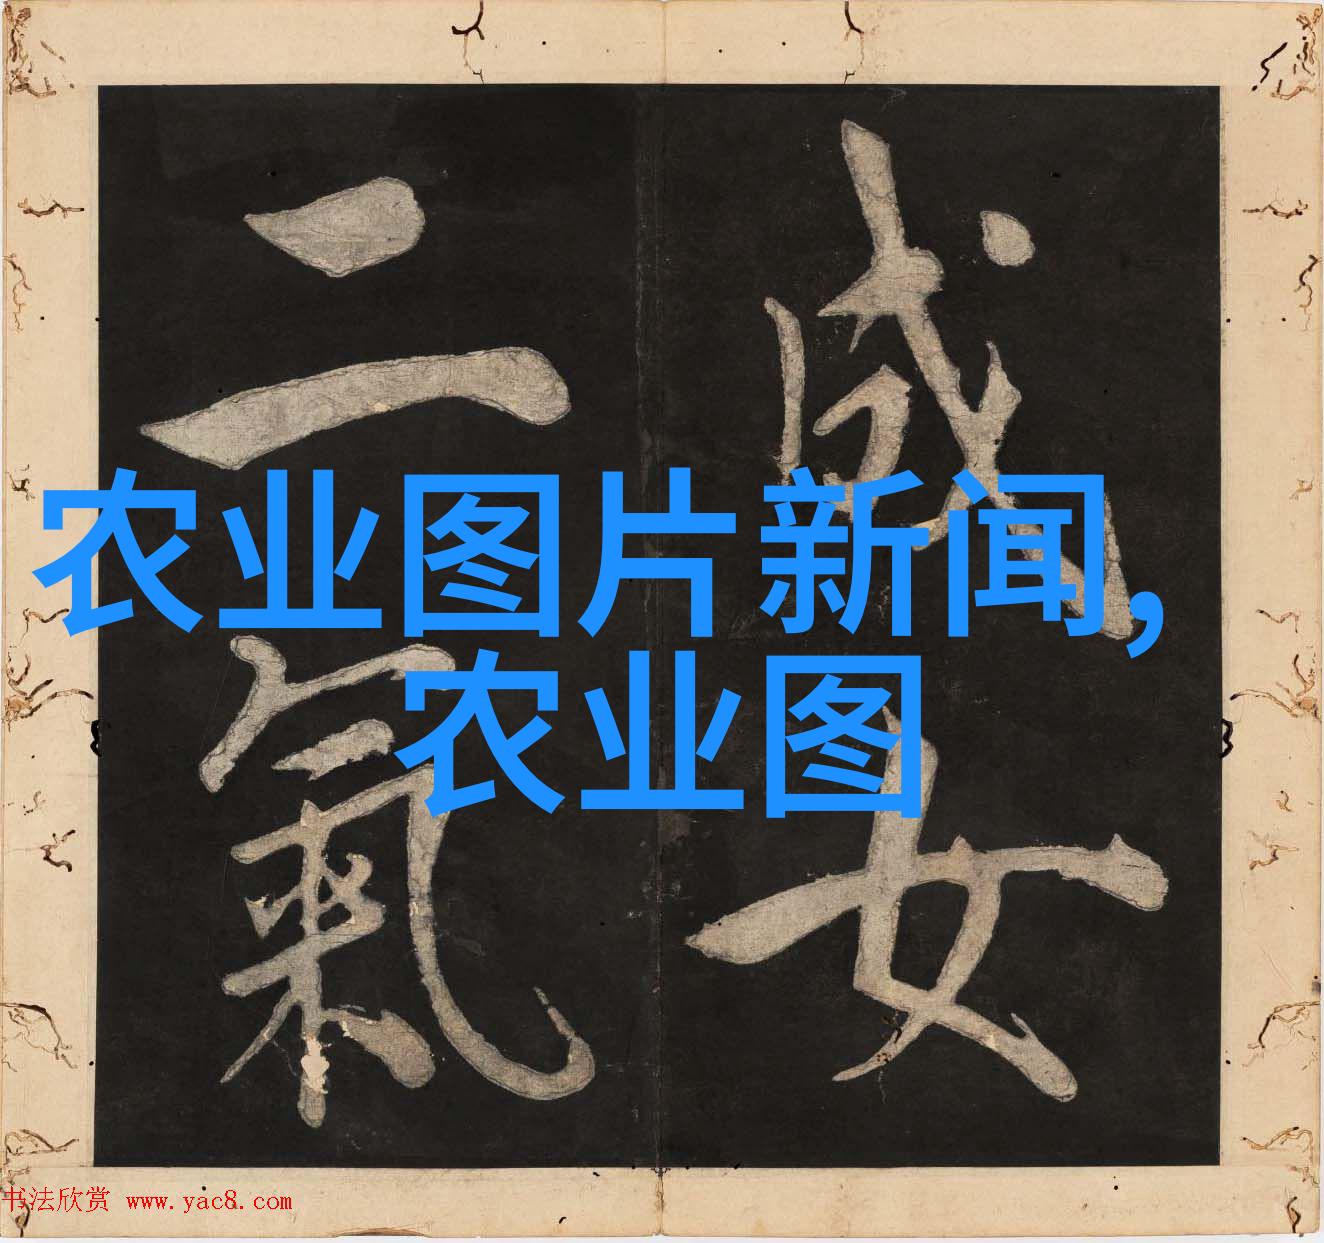 成女
二氣
农业图片新闻,
农业图
书法欣赏 www.yac8.com